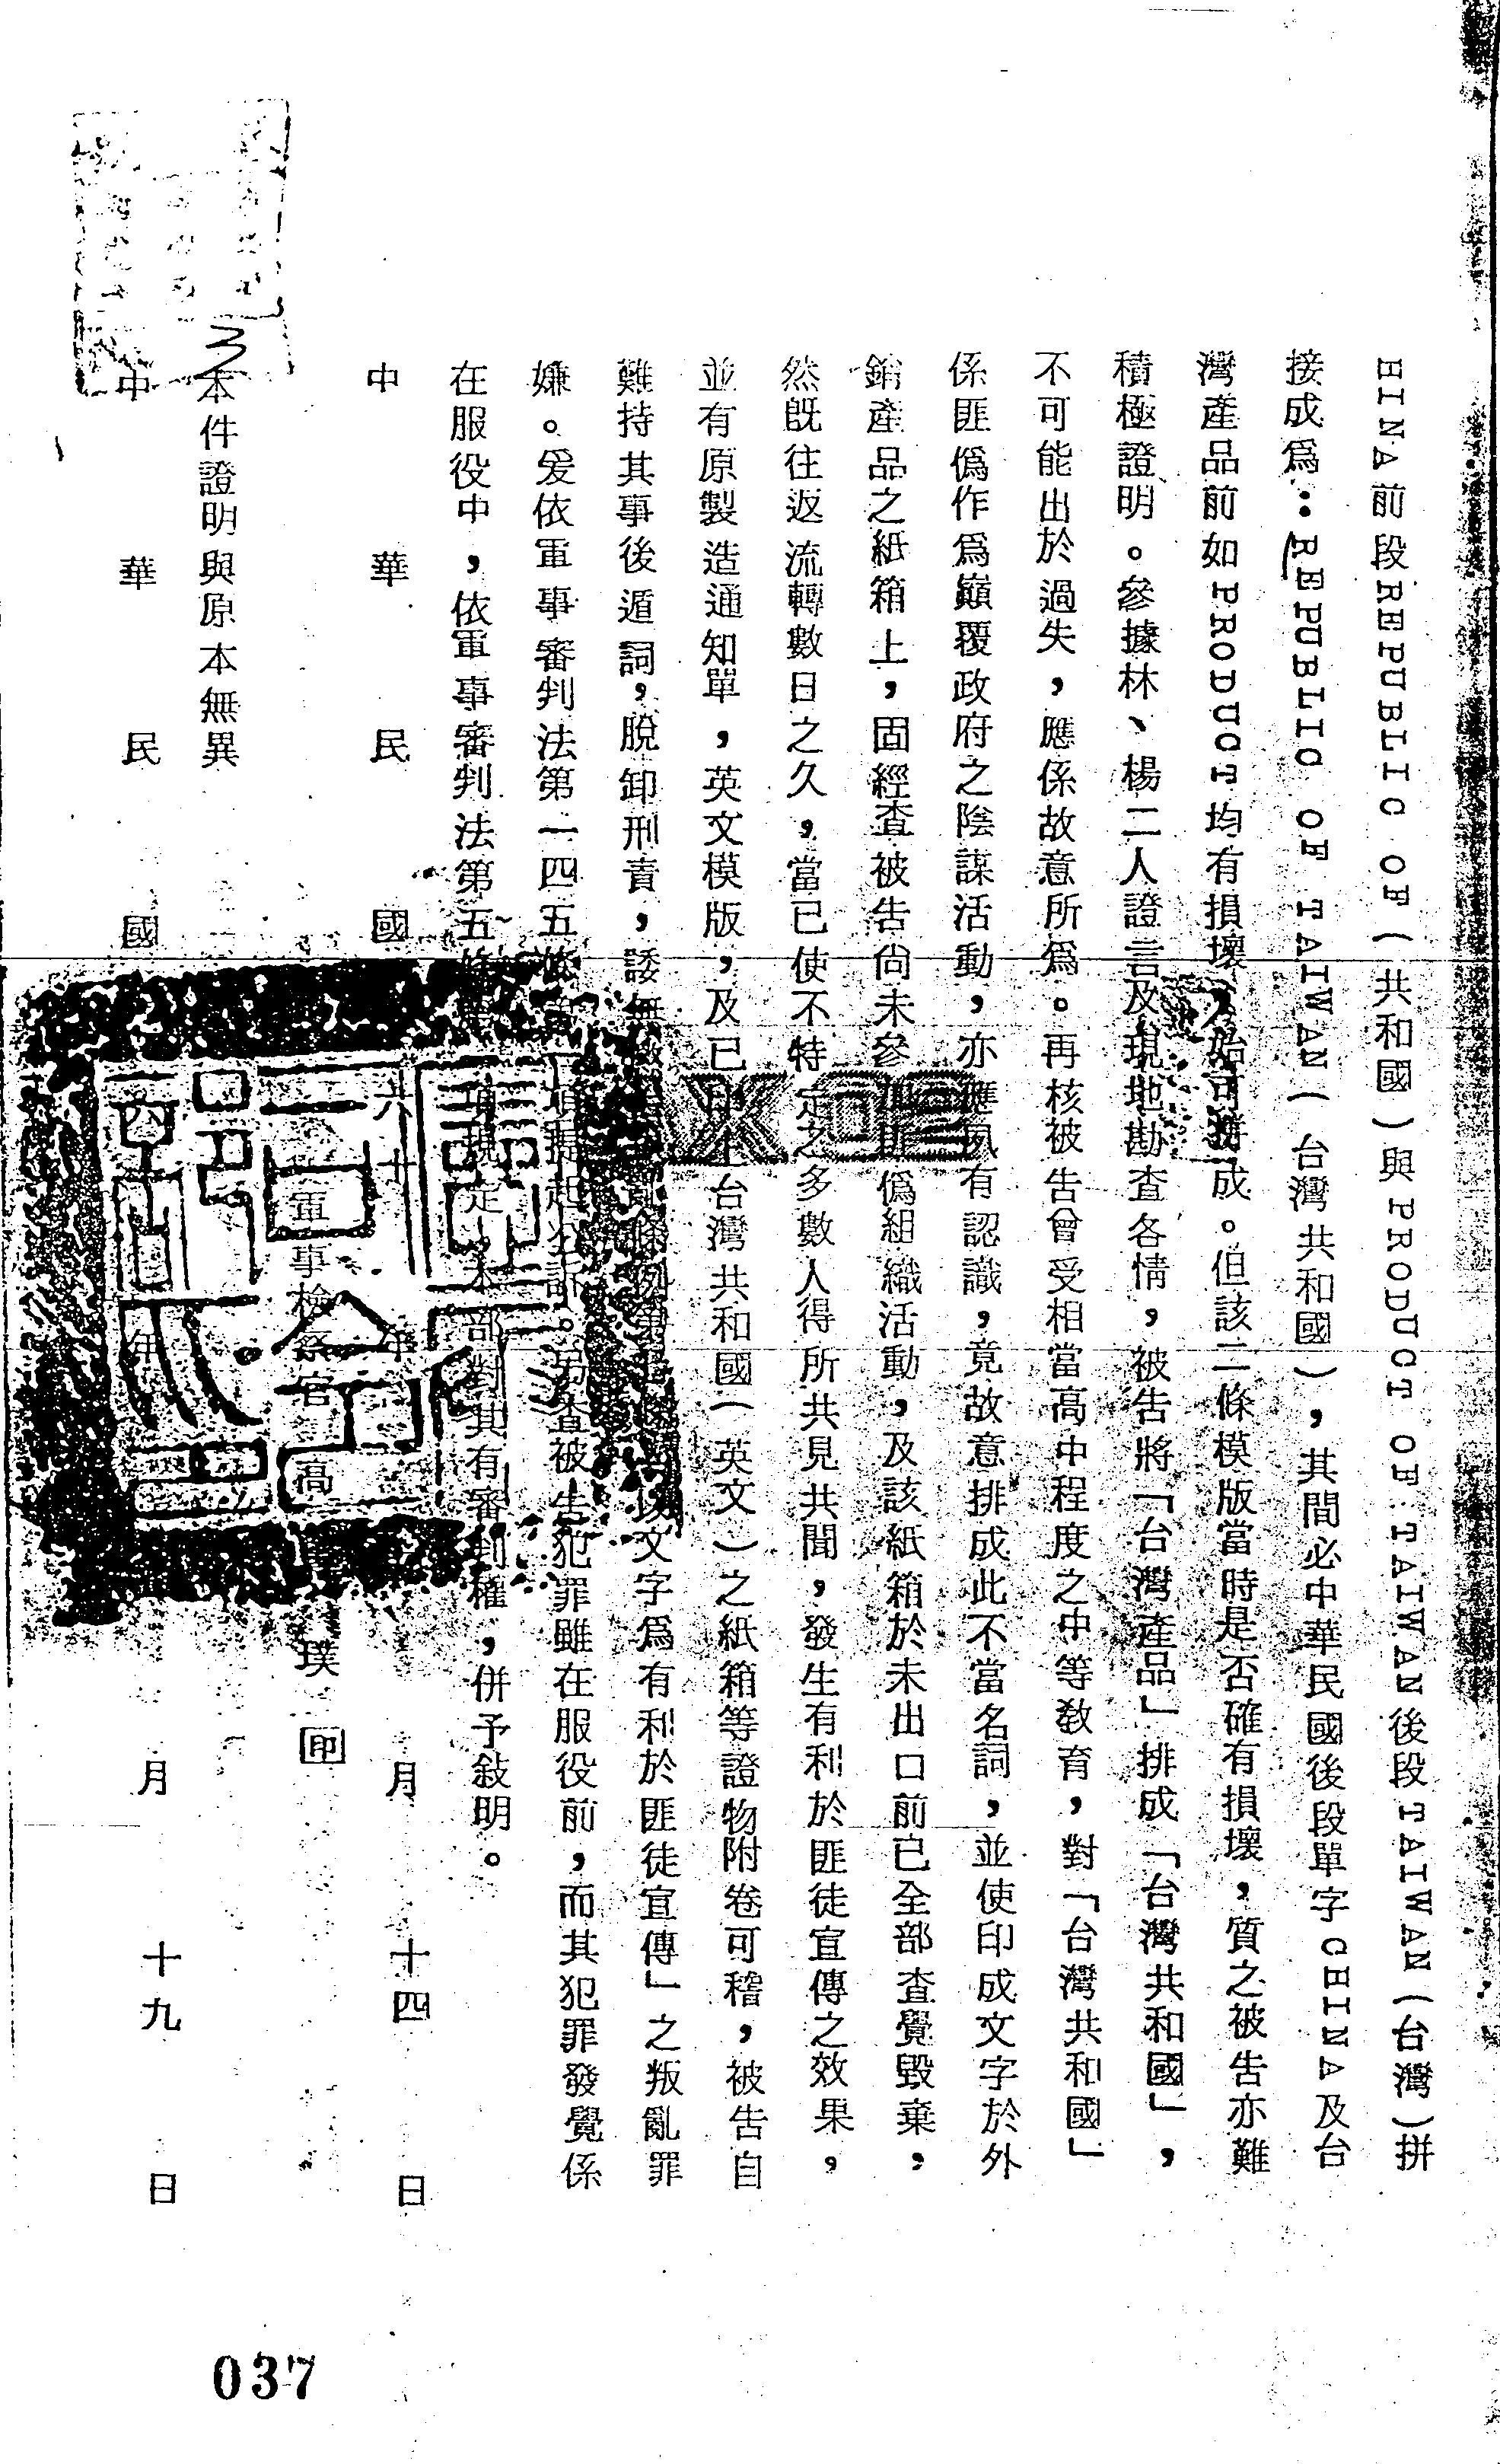 HINA前段REPUBLIC OF(共和國)與PRODUCT OF TAIWAN後段TAIWAN(台灣)拼
接成爲：REPUBLIC OF TAIWAN(台灣共和國)，其間必中華民國後段單字CHINA及台
灣產品前如PRODUCT均有損壞，始可拼成。但該二條模版當時是否確有損壞，質之被告亦難
積極證明。參據林、楊二人證言及現地勘查各情，被告將「台灣產品」排成「台灣共和國」，
不可能出於過失，應係故意所爲。再核被告曾受相當高中程度之中等敎育，對「台灣共和國」
係匪僞作爲巔覆政府之陰謀活動，亦應夙有認識，竟故意排成此不當名詞，並使印成文字於外
銷產品之紙箱上，固經查被告尙未參加匪僞組織活動，及該紙箱於未出口前已全部查覺毀棄，
然旣往返流轉數日之久，當已使不特定之多數人得所共見共聞，發生有利於匪徒宣傳之效果，
並有原製造通知單，英文模版，及已印上台灣共和國(英文)之紙箱等證物附卷可稽，被告自
難持其事後遁詞，脫卸刑責，諉無 條例第 以文字爲有利於匪徒宣傳」之叛亂罪
嫌。爰依軍事審判法第一四五條 項提起公訴。另查被告犯罪雖在服役前，而其犯罪發覺係
在服役中，依軍事審判法第五條 項規定，本部對其有審判權，併予敍明。
中華民國六十 年 月十四日
軍事檢察官高 璞 印
本件證明與原本無異
中華民國 年 月十九日
3
037